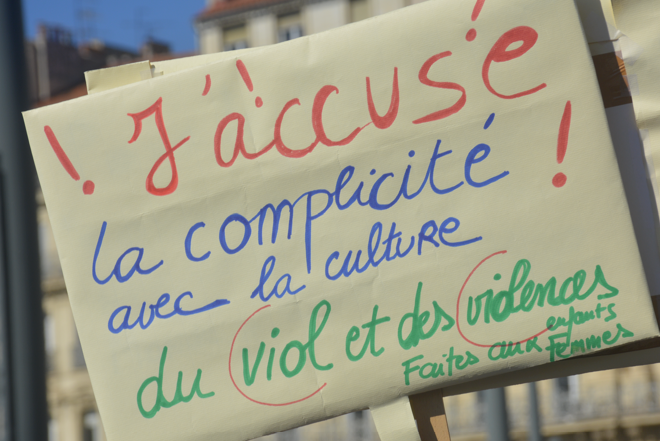 ! J'accuse !
la complicité !
avec la culture
du viol et des violences
Faites aux enfants
femmes